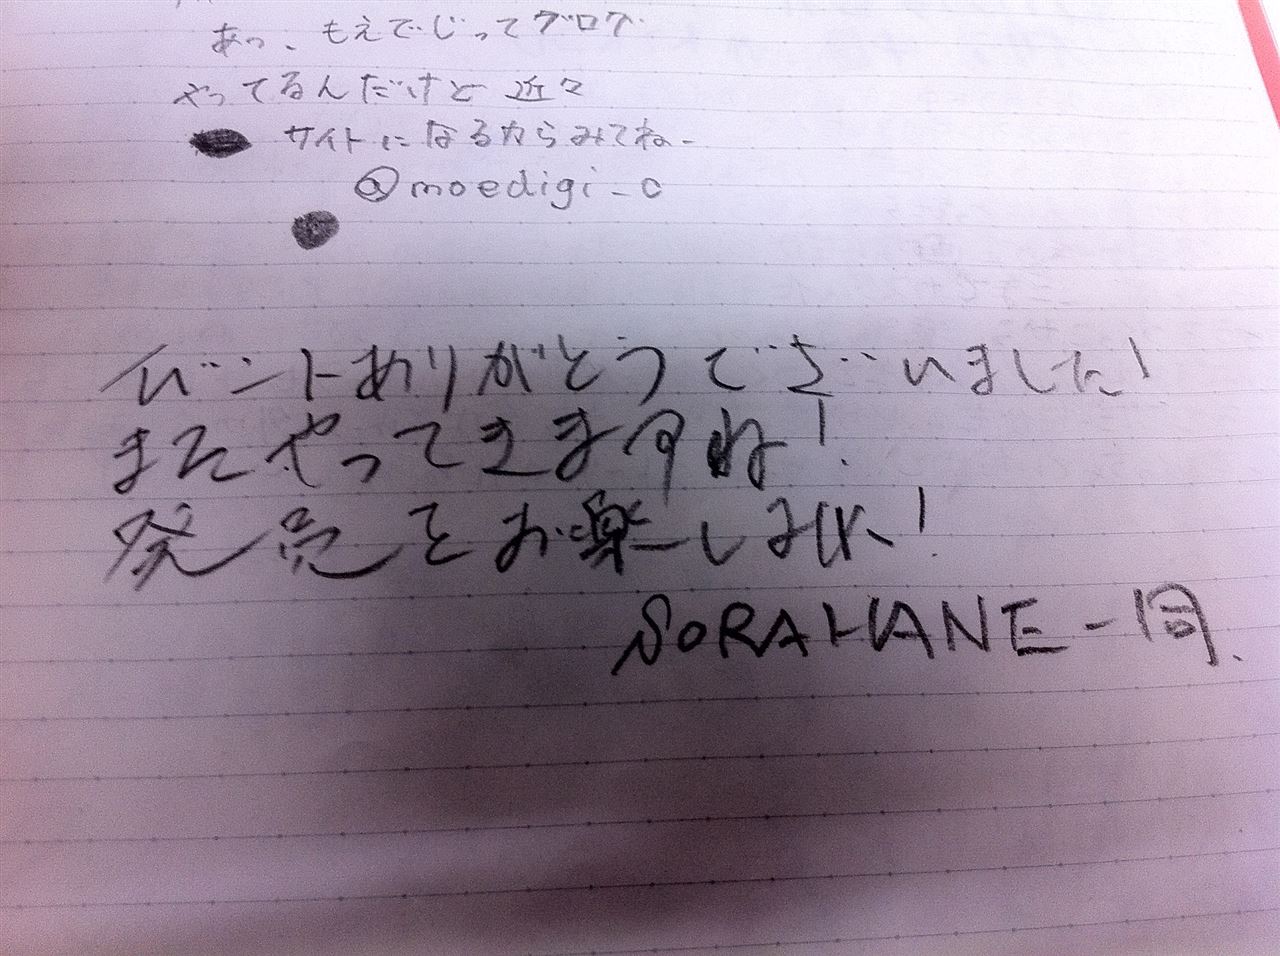 あっ、もえでじってブログ
やってるんだけど近々
サイトになるからみてねー
@moedigi_c
イベントありがとうございました!
またやってきますね!
発売をお楽しみに!
SORAHANE一同.